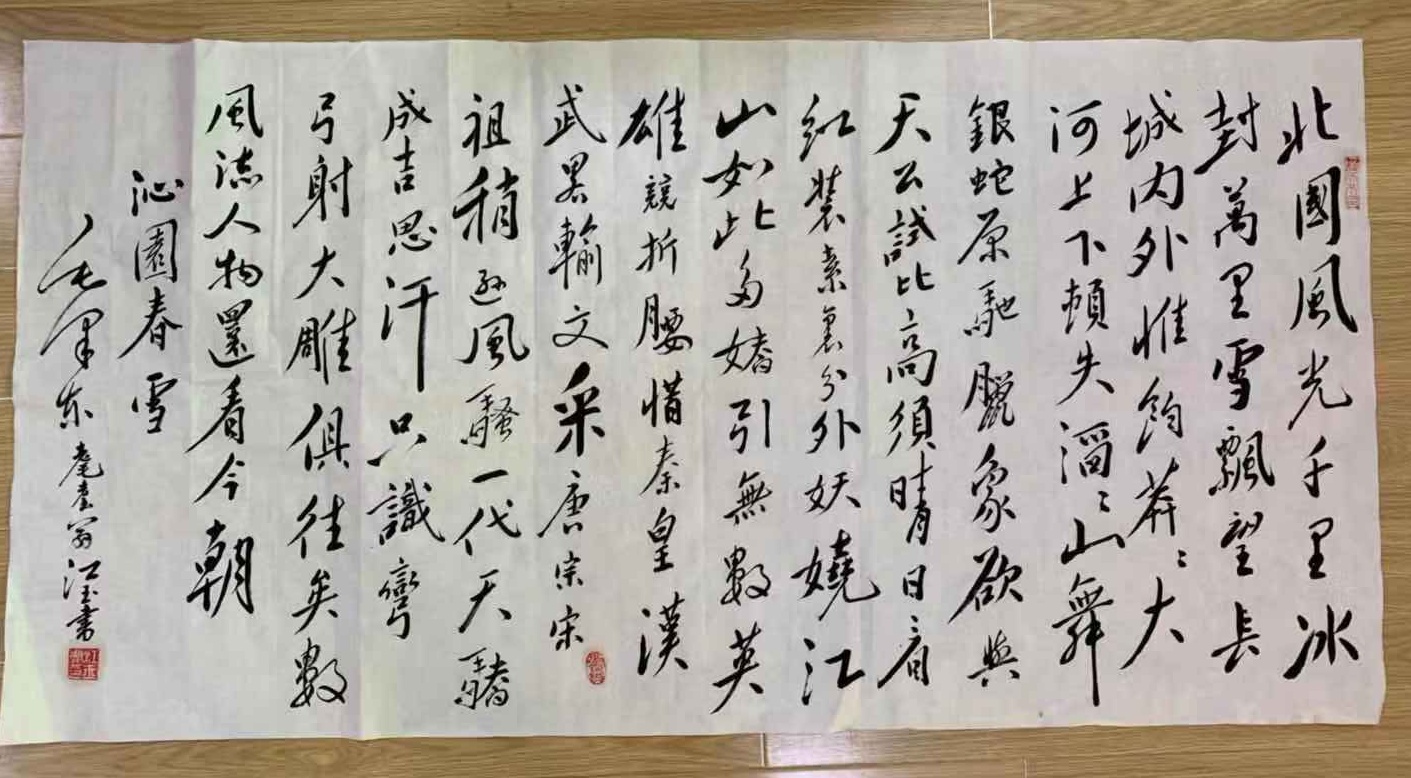 北國風光千里冰
封萬里雪飄望長
城内外惟餘莽〻大
河上下頓失滔〻山舞
銀蛇原馳臘象欲與
天公試比高須晴日看
紅裝素裹分外妖嬈江
山如此多嬌引無數英
雄競折腰惜秦皇漢
武畧輸文采唐宗宋
祖稍遜風騷一代天驕
成吉思汗只識彎
弓射大雕俱往矣數
風流人物還看今朝
沁園春雪
毛澤东 耄耋翁江玉書